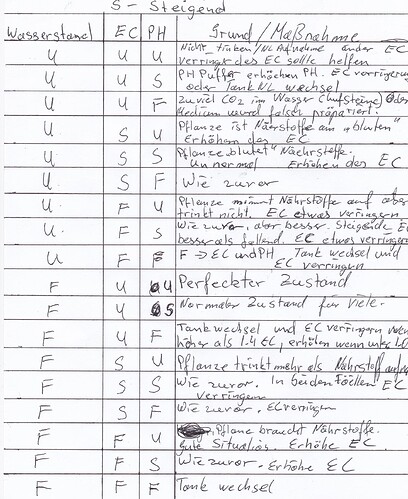 S - Steigend
Wasserstand EC PH Grund/Maßnahme
U U U Nicht trinken/NL Aufnahme ander EC
verringt des EC sollte helfen
U U S PH Puffer erhöchen PH. EC verringerung
oder Tank NL wechsel
U U F zuviel CO2 im Wasser (Luftsteine) Oder
Medium wurd falsch präpariert.
U S U Pflanze ist Näerstoffe am "bluten"
Erhöhen des EC
U S S Pflanze blutet" Naehrstoffe.
Unnormal Erhöhen des EC
U S F Wie zuvor
U F U Pflanze nimmt Nährstoffe auf aber
trinkt nicht. EC etwas verringen
U F S Wie zuvor, aber besser. Steigende EC
besser als fallend. EC etwas verringern
U F F F → EC und PH Tank wechsel und
EC verringen
F U U Perfeckter Zustand
F U S Normaler Zustand für viele.
F U F Tankwechsel und EC verringern wenn
höher als 1.4 EC, erhöhen wenn unter
F S U Pflanze trinkt mehr als Nährstoff
F S S Wie zuvor. In beiden Fäellen EC
verringern
F S F Wie zuvor. EC verringen
F F U Pflanze braucht Nährstoffe.
gute Situation. Erhöhe EC
F F S Wie zuvor. Erhöhe EC
F F F Tank wechsel